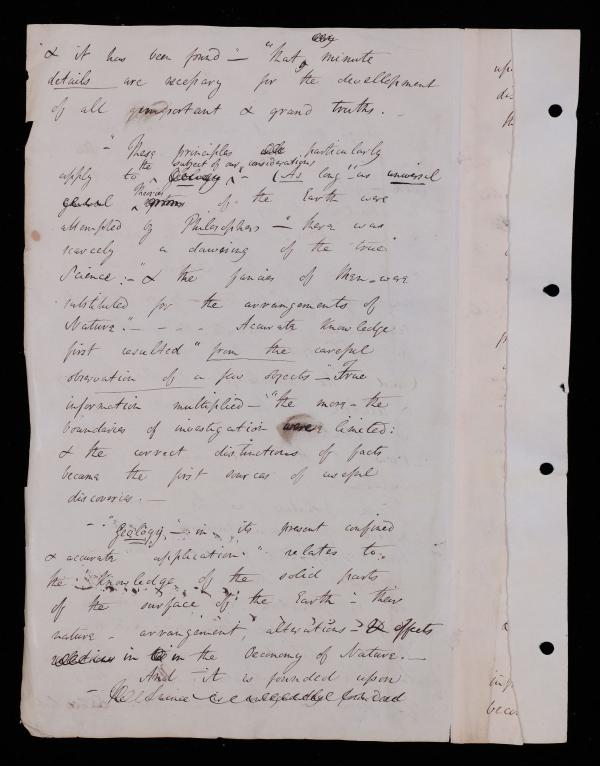 & it has been found – "that minute
details are necessary for the devellopment
of all important & grand truths. –
– "These principles particularly
the subject of our considerations
apply to Geology" – (As long" as universal
general Theories of the Earth were
attempted by Philosophers – "there was
scarcely a dawning of the "true"
Science: – "& the fancies of Men – were
substituted for the arrangements of
Nature". – – – – Accurate Knowledge
first resulted "from the careful
observation of a few objects – "true
information multiplied – "the more – the
boundaries of investigation were limited:
& the correct distinctions of facts
became the first sources of useful
discoveries. –
– – "Geology, – in its present confined
& accurate application " relates to
the "Knowledge of the solid parts
of the surface of the Earth – their
nature – arrangement, alterations – & effects
in the Oeconomy of Nature. –
And it is founded upon
– The Science
upo
th
bec